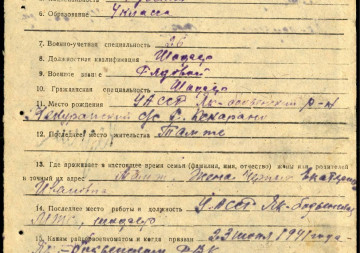 6. Образование 4 класса
7. Военно-учетная специальность 26
8. Должностная квалификация Шофер
9. Военное звание Рядовой
10. Гражданская специальность Шофер
11. Место рождения УАССР Як-Бодьинский р-н
с/с д.
12. Последнее место жительства Там же
13. Где проживает в настоящее время семья (фамилия, имя, отчество) жены или родителей
и точный их адрес Там же Жена Екатерина
Ивановна
14. Последнее место работы и должность УАССР Як-Бодьинская
МТС, шофер
15. Каким райвоенкоматом и когда призван 23 июля 1941 года
Як-Бодьинским РВК